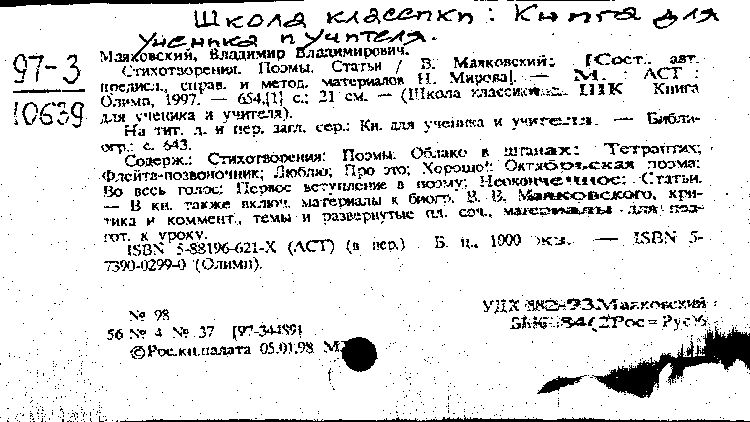 Школа классики: Книга для
ученика и учителя.
97-3
10639
Маяковский, Владимир Владимирович.
Стихотворения. Поэмы. Статьи / В. Маяковский; [Сост., авт.
предисл., справ. и метод. материалов Н. Мирова]. — М. : АСТ :
Олимп, 1997. — 654,[1] с.; 21 см. — (Школа классики. ШК Книга
для ученика и учителя).
На тит. л. и пер. загл. сер.: Кн. для ученика и учителя. — Библи-
огр.: с. 643.
Содерж.: Стихотворения; Поэмы: Облако в штанах: Тетраптих;
Флейта-позвоночник; Люблю; Про это; Хорошо!: Октябрьская поэма;
Во весь голос: Первое вступление в поэму; Неоконченное; Статьи.
— В кн. также включ. материалы к биогр. В. В. Маяковского, кри-
тика и коммент., темы и развернутые пл. соч., материалы для под-
гот. к уроку.
ISBN 5-88196-621-X (АСТ) (в пер.) Б. ц., 1000 экз. — ISBN 5-
7390-0299-0 (Олимп).
№ 98
56 № 4 № 37 [97-34489]
© Рос.кн.палата 05.01.98
УДК 882-93Маяковский
ББК 84(2Рос=Рус)6